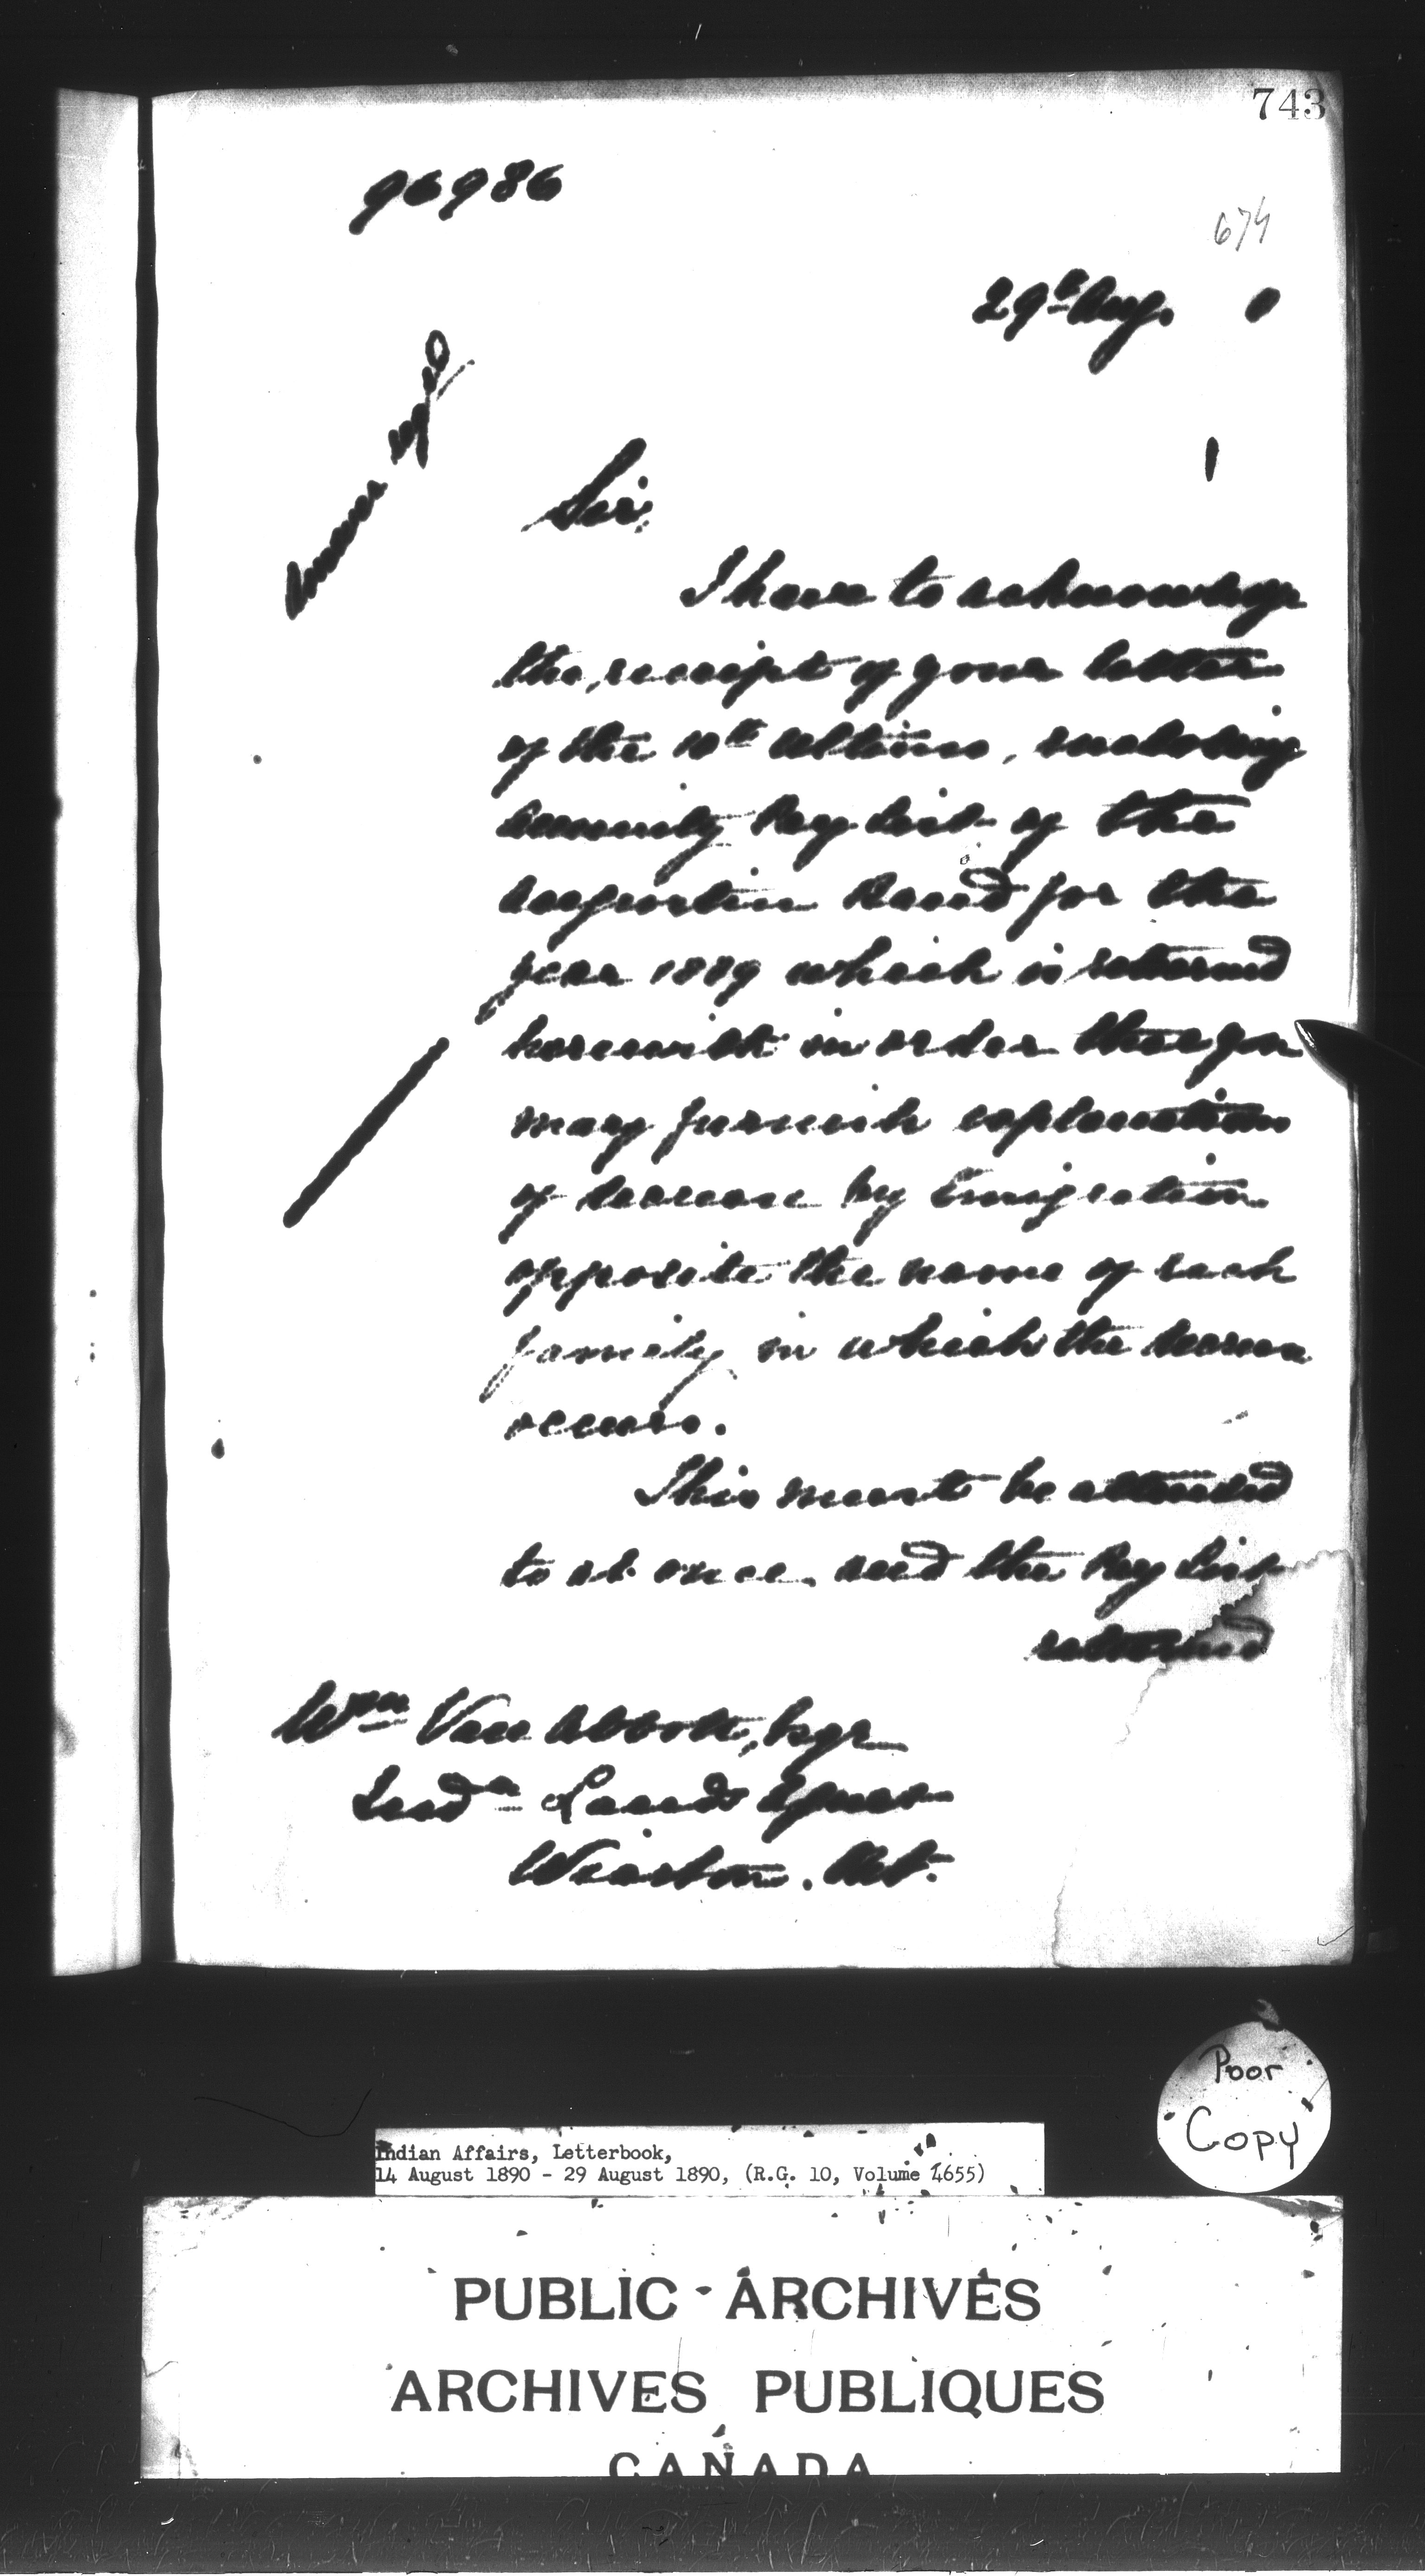 743
96986
674
29th Aug. 0
Sir,
I have to acknowledge
the receipt of your letter
of the 10th Ultimo, enclosing
Annuity Pay list of the
Band for the
year 1889 which is returned
herewith in order that you
may furnish explanation
of decrease by Emigration
opposite the name of each
family in which the decrease
occurs.
This must be attended
to at once and the Pay List
returned
Wm Van Abbott, Esqr
Indn Lands Agent
Wiarton. Ont.
Poor
Copy
Indian Affairs, Letterbook,
14 August 1890 - 29 August 1890, (R.G. 10, Volume 4655)
PUBLIC ARCHIVES
ARCHIVES PUBLIQUES
CANADA